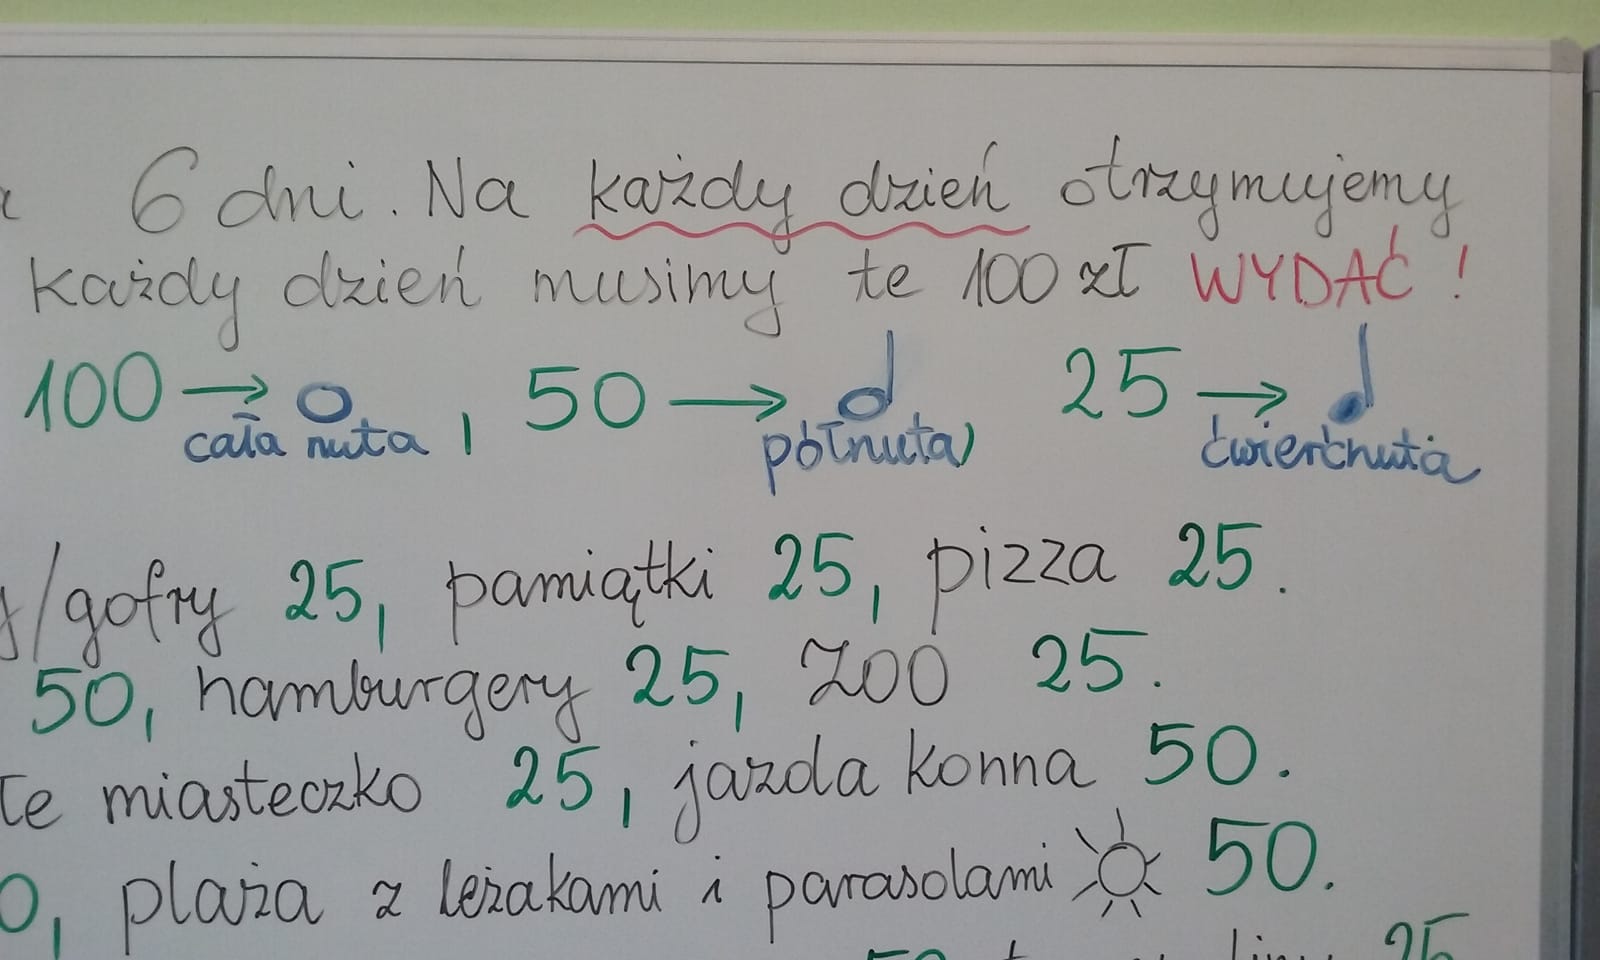 6 dni. Na każdy dzień otrzymujemy
każdy dzień musimy te 100 zł WYDAĆ!
100 → , 50 → 25 →
cała nuta półnuta, ćwierćnuta
/gofry 25, pamiątki 25, pizza 25.
50, hamburgery 25, ZOO 25.
miasteczko 25, jazda konna 50.
0, plaża z leżakami i parasolami 50.
25